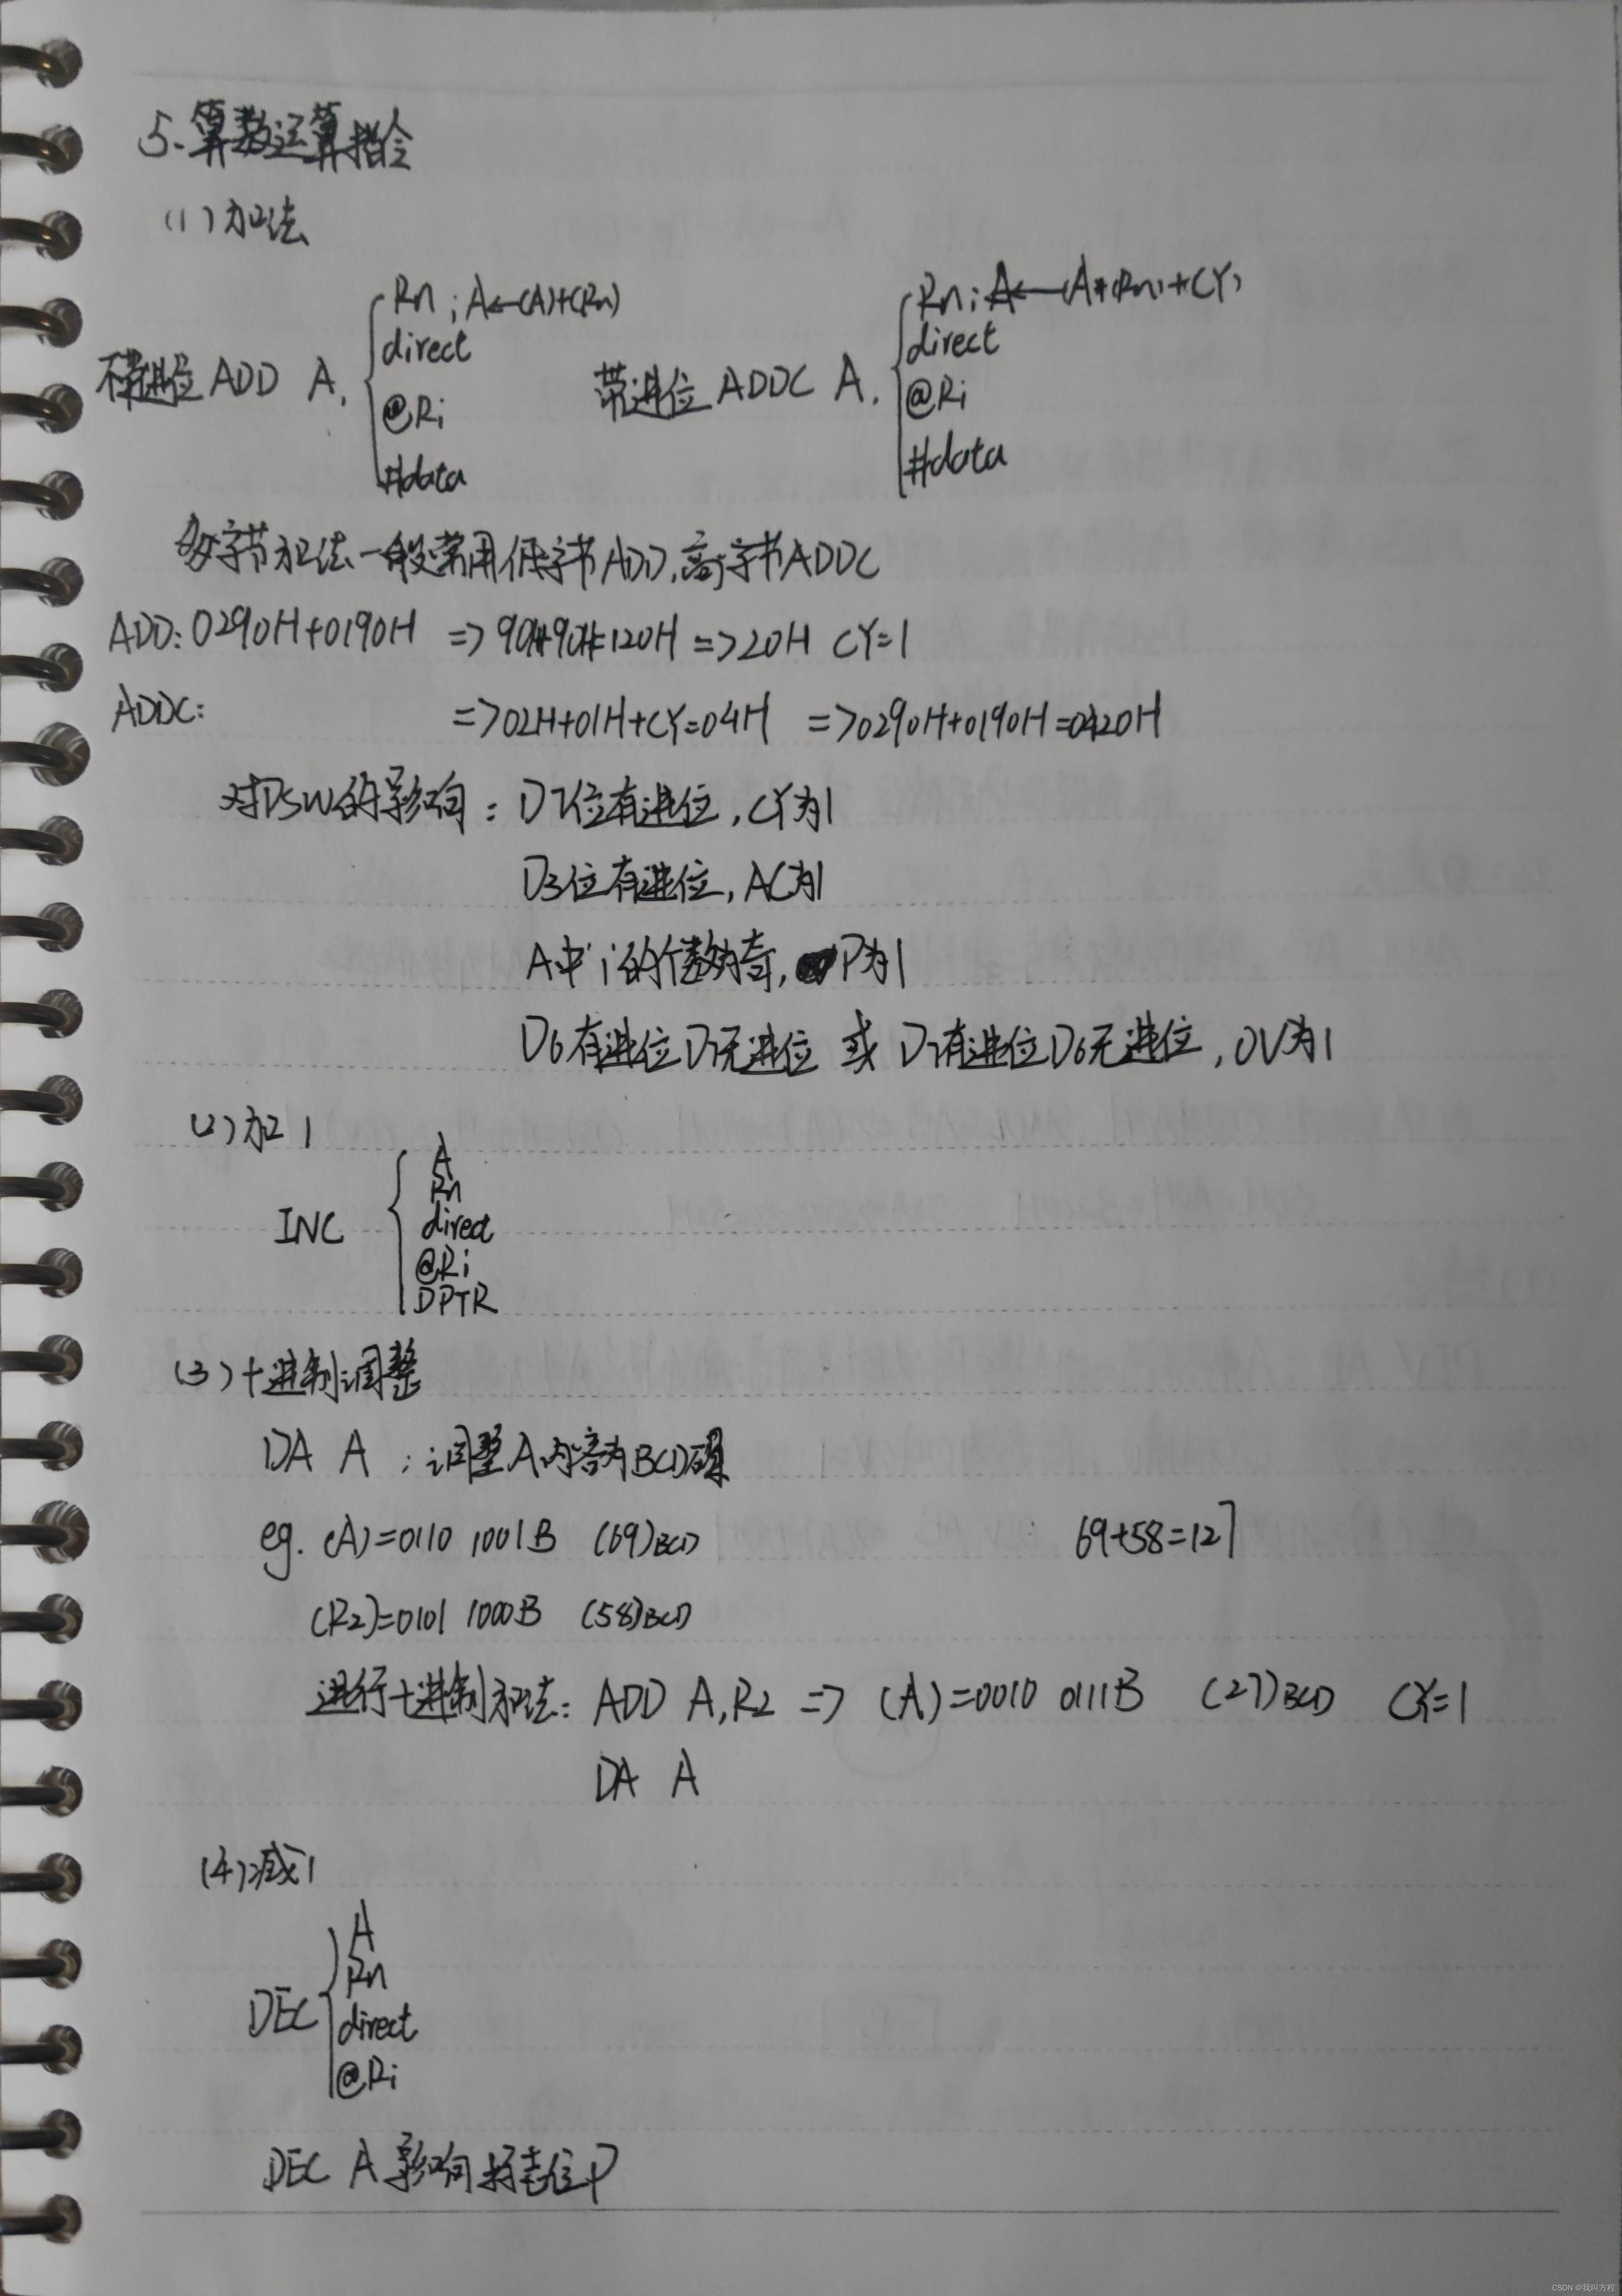 5、算数运算指令
(1)加法
不带进位 ADD A, { Rn ; A←(A)+(Rn)
direct
@Ri
#data
带进位 ADDC A, { Rn ; A←(A+(Rn)+CY)
direct
@Ri
#data
多字节加法一般常用低字节ADD,高字节ADDC
ADD: 0290H+0190H => 90H+90H=120H => 20H CY=1
ADDC: => 02H+01H+CY=04H => 0290H+0190H=0420H
对PSW的影响: D7位有进位,CY为1
D3位有进位,AC为1
A中1的个数为奇,P为1
D6有进位D7无进位 或 D7有进位D6无进位,OV为1
(2)加1
INC { A
Rn
direct
@Ri
DPTR
(3)十进制调整
DA A ; 调整A内容为BCD码
eg. (A)=0110 1001B (69)BCD 69+58=127
(R2)=0101 1000B (58)BCD
进行十进制加法: ADD A,R2 => (A)=0010 0111B (27)BCD CY=1
DA A
(4)减1
DEC { A
Rn
direct
@Ri
DEC A 影响标志位P
CSDN @我叫方程